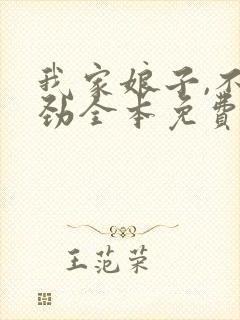 我家娘子,不
劲全本免费
王范荣